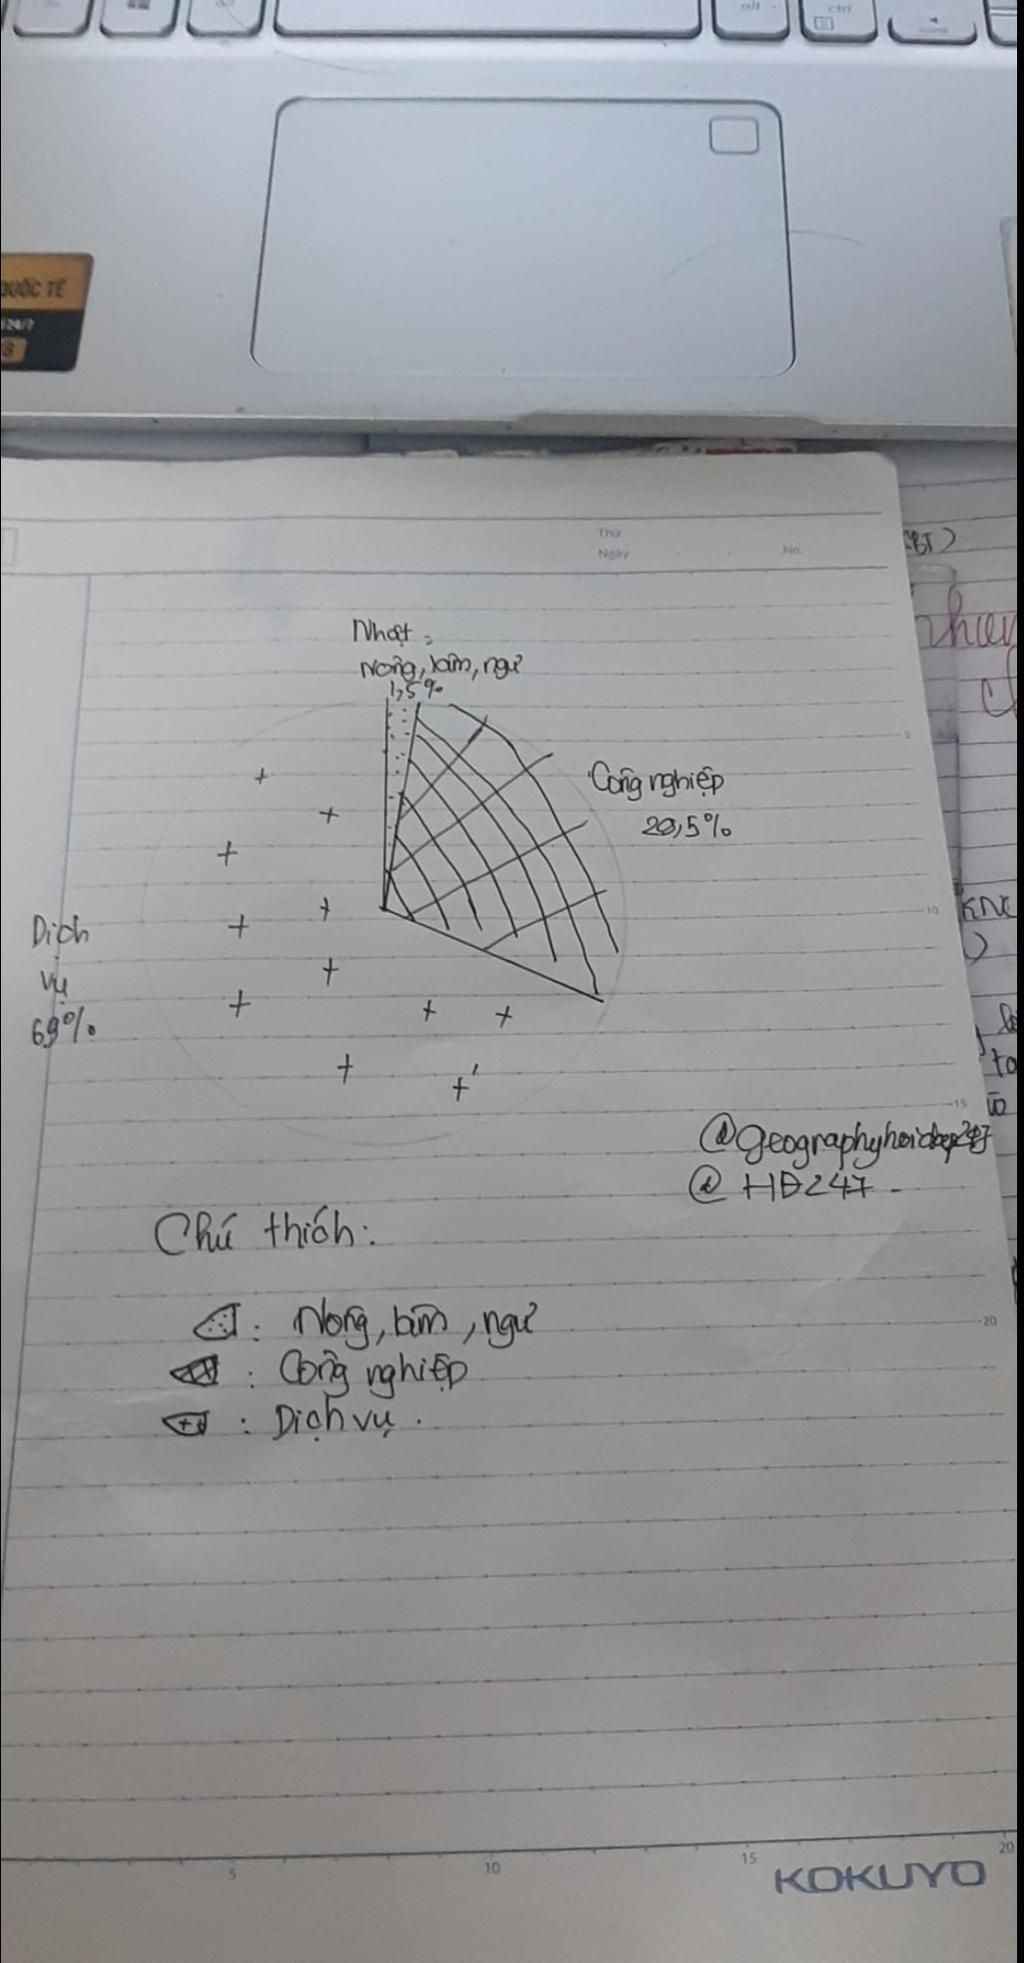 alt
ctrl
QUỐC TẾ
24/7
Thứ
Ngày
No.
Nhật:
Nông, lâm, ngư
1,5%
Công nghiệp
29,5%
Dịch
vụ
69%
@HĐ247
Chú thích:
: Nông, lâm, ngư
: Công nghiệp
: Dịch vụ.
5
10
15
20
5
10
15
20
KOKUYO